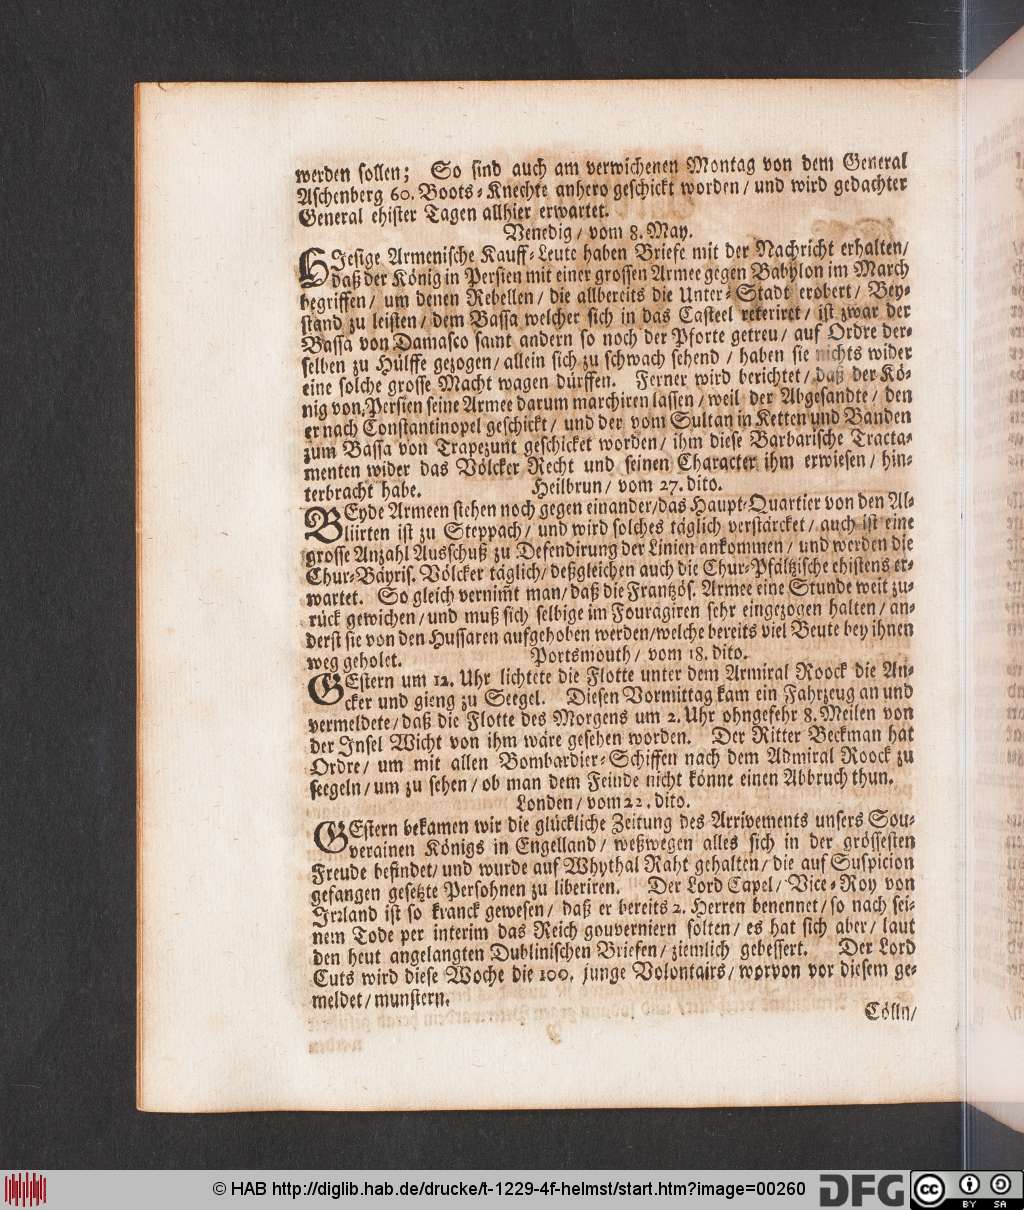 werden sollen; So sind auch am verwichenen Montag von dem General
Aschenberg 60. Boots-Knechte anhero geschickt worden/ und wird gedachter
General ehister Tagen allhier erwartet.
Venedig/ vom 8. May.
HIesige Armenische Kauff-Leute haben Briefe mit der Nachricht erhalten/
daß der König in Persien mit einer grossen Armee gegen Babylon im March
begriffen/ um denen Rebellen/ die allbereits die Unter-Stadt erobert/ Bey-
stand zu leisten/ dem Bassa welcher sich in das Casteel reteriret/ ist zwar der
Bassa von Damasco samt andern so noch der Pforte getreu/ auf Ordre der-
selben zu Hülffe gezogen/ allein sich zu schwach sehend/ haben sie nichts wider
eine solche grosse Macht wagen dürffen. Ferner wird berichtet/ daß der Kö-
nig von Persien seine Armee darum marchiren lassen/ weil der Abgesandte/ den
er nach Constantinopel geschickt/ und der vom Sultan in Ketten und Banden
zum Bassa von Trapezunt geschicket worden/ ihm diese Barbarische Tracta-
menten wider das Völcker Recht und seinen Character ihm erwiesen/ hin-
terbracht habe. Heilbrun/ vom 27. dito.
BEyde Armeen stehen noch gegen einander/das Haupt-Quartier von den Al-
liirten ist zu Steppach/ und wird solches täglich verstärcket/ auch ist eine
grosse Anzahl Ausschuß zu Defendirung der Linien ankommen/ und werden die
Chur-Bäyris. Völcker täglich/ deßgleichen auch die Chur-Pfältzische ehistens er-
wartet. So gleich vernim̄t man/ daß die Frantzös. Armee eine Stunde weit zu-
rück gewichen/ und muß sich selbige im Fouragiren sehr eingezogen halten/ an-
derst sie von den Hussaren aufgehoben werden/welche bereits viel Beute bey ihnen
weg geholet. Portsmouth/ vom 18. dito.
GEstern um 12. Uhr lichtete die Flotte unter dem Armiral Roock die An-
cker und gieng zu Seegel. Diesen Vormittag kam ein Fahrzeug an und
vermeldete/ daß die Flotte des Morgens um 2. Uhr ohngefehr 8. Meilen von
der Insel Wicht von ihm wäre gesehen worden. Der Ritter Beckman hat
Ordre/ um mit allen Bombardier-Schiffen nach dem Admiral Roock zu
seegeln/ um zu sehen/ ob man dem Feinde nicht könne einen Abbruch thun.
Londen/ vom 22. dito.
GEstern bekamen wir die glückliche Zeitung des Arrivements unsers Sou-
verainen Königs in Engelland/ weßwegen alles sich in der grössesten
Freude befindet/ und wurde auf Whythal Raht gehalten/ die auf Suspicion
gefangen gesetzte Persohnen zu liberiren. Der Lord Capel/ Vice-Roy von
Irrland ist so kranck gewesen/ daß er bereits 2. Herren benennet/ so nach sei-
nem Tode per interim das Reich gouverniern solten/ es hat sich aber/ laut
den heut angelangten Dublinischen Briefen/ ziemlich gebessert. Der Lord
Cuts wird diese Woche die 100. junge Volontairs/ worvon vor diesem ge-
meldet/ munstern.
Cölln/
© HAB http://diglib.hab.de/drucke/t-1229-4f-helmst/start.htm?image=00260
DFG
cc
BY SA